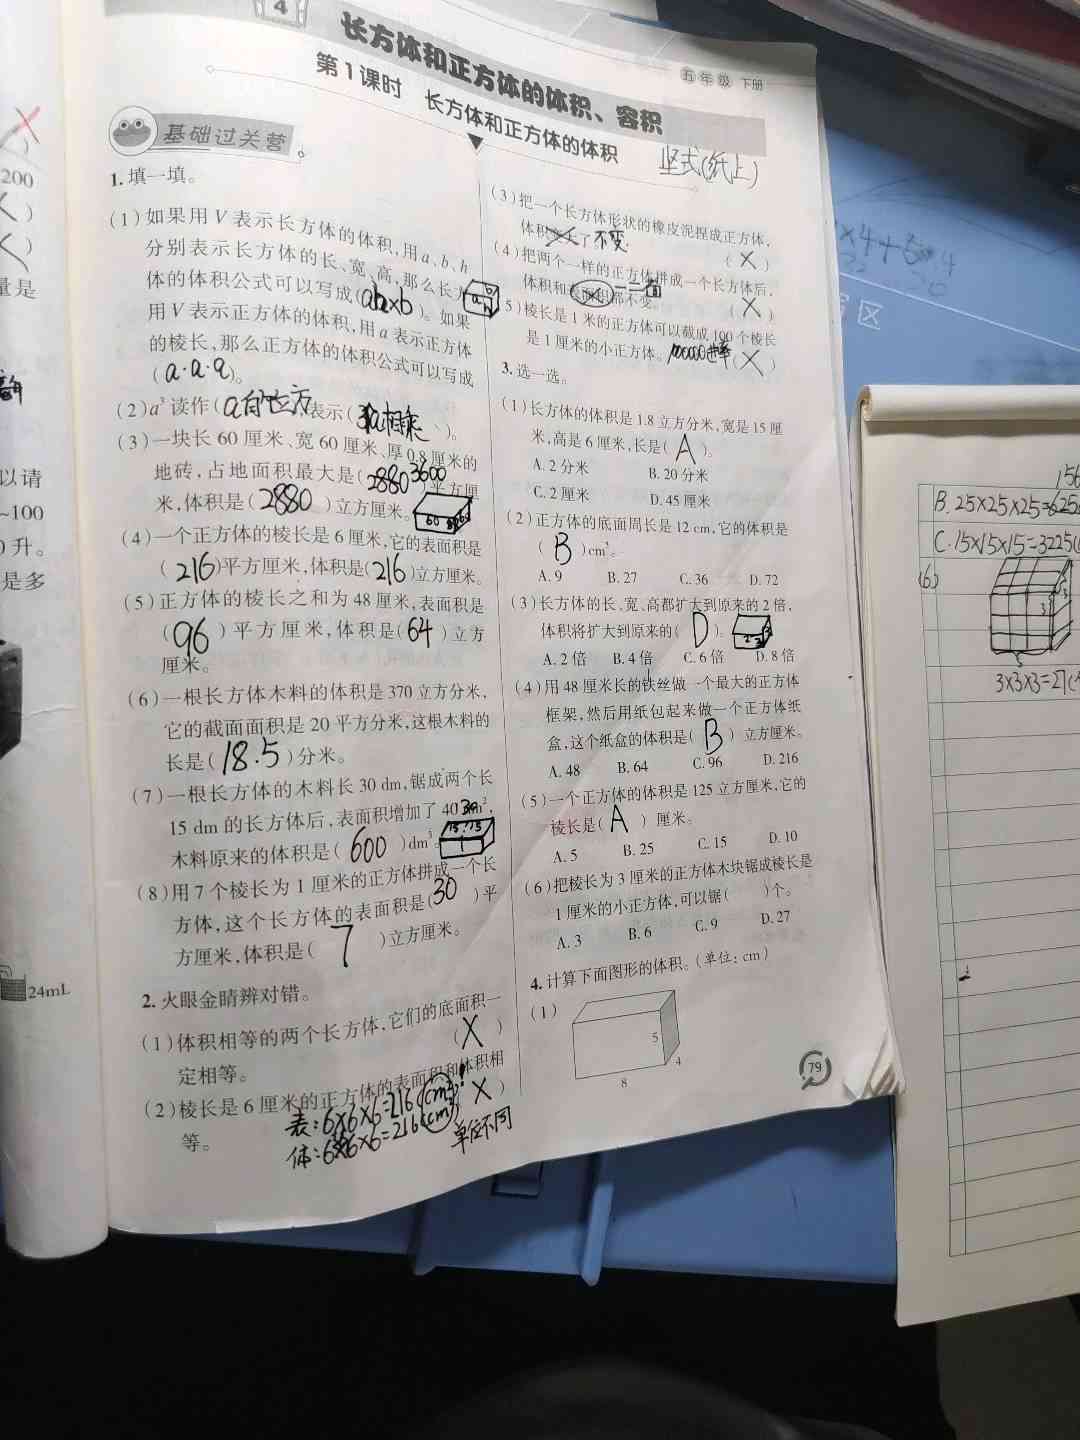 4
长方体和正方体的体积、容积
五年级 下册
第1课时 长方体和正方体的体积
竖式(纸上)
基础过关营
1.填一填。
(1)如果用V表示长方体的体积,用a、b、h
分别表示长方体的长、宽、高,那么长方
体的体积公式可以写成( )。如果
用V表示正方体的体积,用a表示正方体
的棱长,那么正方体的体积公式可以写成
(a·a·a)。
(2)a³读作(a的立方)表示( )。
(3)一块长60厘米、宽60厘米、厚0.8厘米的
地砖,占地面积最大是(2880 3600)平方厘
米,体积是(2880)立方厘米。
(4)一个正方体的棱长是6厘米,它的表面积是
(216)平方厘米,体积是(216)立方厘米。
(5)正方体的棱长之和为48厘米,表面积是
(96)平方厘米,体积是(64)立方
厘米。
(6)一根长方体木料的体积是370立方分米,
它的截面面积是20平方分米,这根木料的
长是(18.5)分米。
(7)一根长方体的木料长30 dm,锯成两个长
15 dm的长方体后,表面积增加了40 dm²,
木料原来的体积是(600)dm³。
(8)用7个棱长为1厘米的正方体拼成一个长
方体,这个长方体的表面积是(30)平
方厘米,体积是(7)立方厘米。
2.火眼金睛辨对错。
(1)体积相等的两个长方体,它们的底面积一
定相等。(X)
(2)棱长是6厘米的正方体的表面积和体积相
等。(X)
表:6×6×6=216(cm²)!
体:6×6×6=216(cm³)
单位不同
(3)把一个长方体形状的橡皮泥捏成正方体,
体积变大了不变。(X)
(4)把两个一样的正方体拼成一个长方体后,
体积和表面积都不变。(X)
5)棱长是1米的正方体可以截成100个棱长
是1厘米的小正方体。(X)
3.选一选。
(1)长方体的体积是1.8立方分米,宽是15厘
米,高是6厘米,长是(A)。
A.2分米 B.20分米
C.2厘米 D.45厘米
(2)正方体的底面周长是12 cm,它的体积是
(B)cm³。
A.9 B.27 C.36 D.72
(3)长方体的长、宽、高都扩大到原来的2倍,
体积将扩大到原来的(D)。
A.2倍 B.4倍 C.6倍 D.8倍
(4)用48厘米长的铁丝做一个最大的正方体
框架,然后用纸包起来做一个正方体纸
盒,这个纸盒的体积是(B)立方厘米。
A.48 B.64 C.96 D.216
(5)一个正方体的体积是125立方厘米,它的
棱长是(A)厘米。
A.5 B.25 C.15 D.10
(6)把棱长为3厘米的正方体木块锯成棱长是
1厘米的小正方体,可以锯( )个。
A.3 B.6 C.9 D.27
4.计算下面图形的体积。(单位:cm)
(1)
5
4
8
79
200
量是
以请
~100
0升。
是多
24mL
156
B.25×25×25=625
C.15×15×15=3225
(6)
3×3×3=27